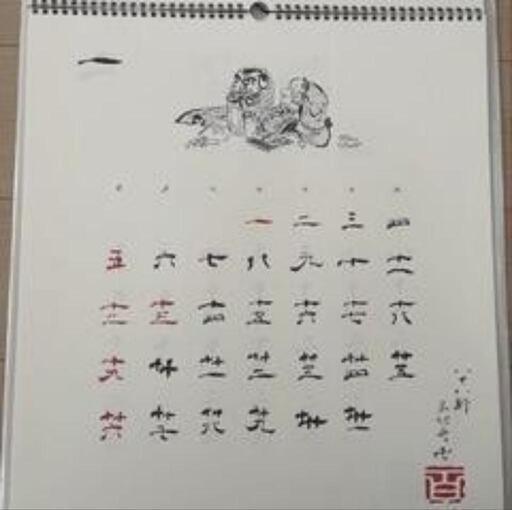 一
一 二 三 四
五 六 七 八 九 十 十一
十二 十三 十四 十五 十六 十七 十八
十九 廿 廿一 廿二 廿三 廿四 廿五
廿六 廿七 廿八 廿九 卅 卅一